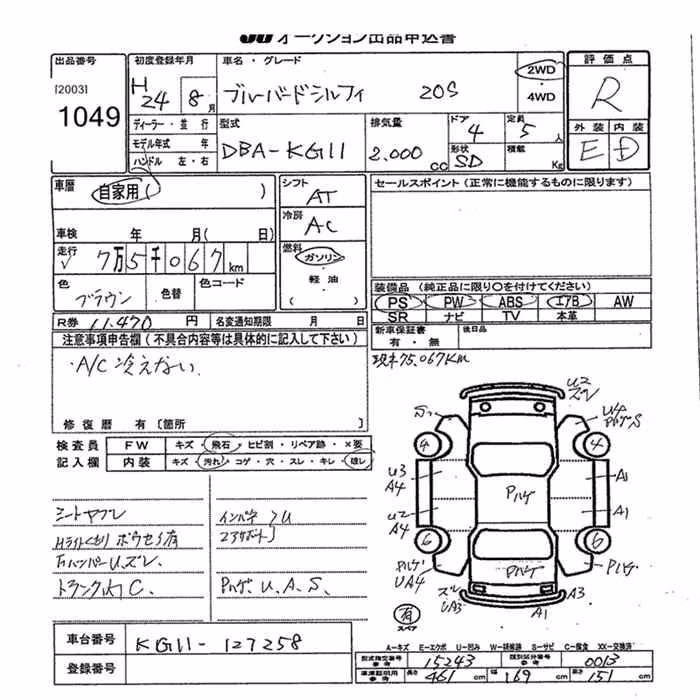 JU オークション出品申込書
出品番号
[2003]
1049
初度登録年月
H 24 年 8 月
ディーラー・並行
モデル年式 年
ハンドル 左・右
車名・グレード
ブルーバードシルフィ 20S
2WD
・
4WD
型式
DBA-KG11
排気量
2.000 cc
ドア 4
定員 5 人
形状 SD
積載 Kg
評価点
R
外装 内装
E D
車歴
自家用 ( )
車検 年 月( 日)
走行
7万5千067km
色
ブラウン
色替
色コード
シフト
AT
冷房
AC
燃料
ガソリン
軽油
( )
R券 11.470 円
名変通知期限 月 日
セールスポイント(正常に機能するものに限ります)
装備品(純正品に限り○を付けてください)
PS PW ABS エアB AW
SR ナビ TV 本革
新車保証書
有・無
後日品
注意事項申告欄(不具合内容等は具体的に記入して下さい)
・A/C冷えない
修復歴 有〔箇所 〕
現キ75.067Km
検査員
記入欄
FW キズ・飛石・ヒビ割・リペア跡・×要
内装 キズ・汚れ・コゲ・穴・スレ・キレ・雄レ
シートヤブレ
Hライトくもり ボウセイ有
Fバンパー U.ズレ
トランク内 C.
インパネ フU
エアサポート
Pハゲ. U. A. S.
U2
ズレ
S
U4
PハゲS
4
4
U3
A4
A1
Pハゲ
U2
A4
A1
6
6
Pハゲ
UA4
Pハゲ
Pハゲ
ズレ
UA3
A3
A1
有
スペア
車台番号
KG11-127258
登録番号
A-キズ E-エクボ U-凹み W-補修跡 S-サビ C-腐食 XX-交換済
型式指定番号
参考
15243
類別区分番号
参考
0013
車庫証明用
参考
長さ 461 cm
幅 169 cm
高さ 151 cm